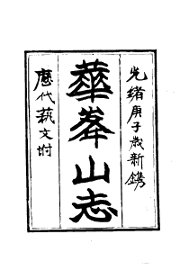 光緒庚子歲新鐫
華峯山志
歷代藝文附